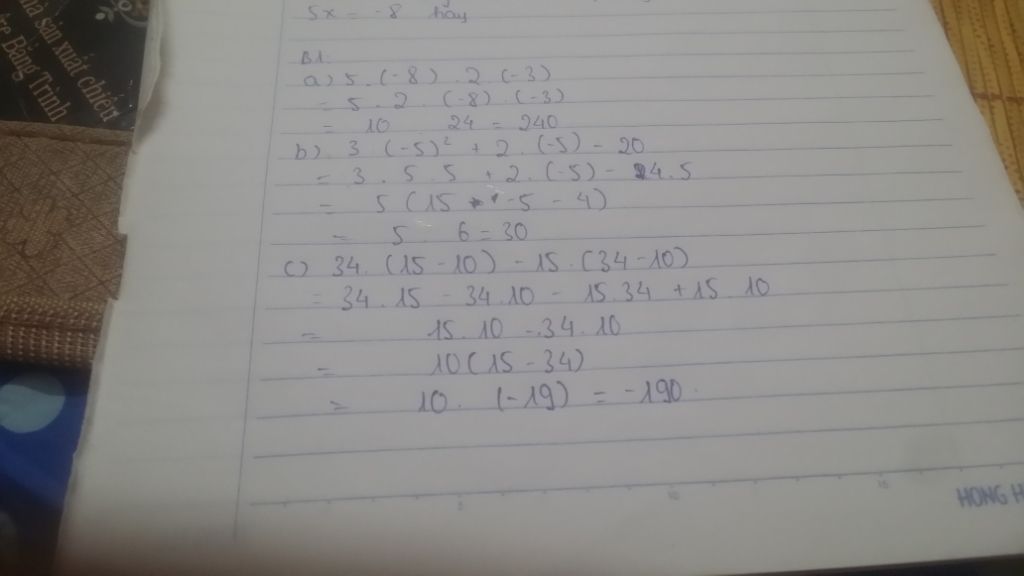 nhà sản xuất chiến
Bằng Trình
5x = -8
B1.
a) 5 . (-8) . 2 (-3)
= 5 . 2 . (-8) . (-3)
= 10 24 = 240
b) 3 (-5)² + 2 . (-5) - 20
= 3 . 5 5 + 2 . (-5) - 4.5
= 5 (15 -5 - 4)
= 5 . 6 = 30
c) 34. (15 - 10) - 15 . (34 - 10)
= 34 . 15 - 34.10 - 15.34 + 15 . 10
= 15.10 - 34.10
= 10 (15 - 34)
= 10 . (-19) = -190.
5 10 15
HONG H